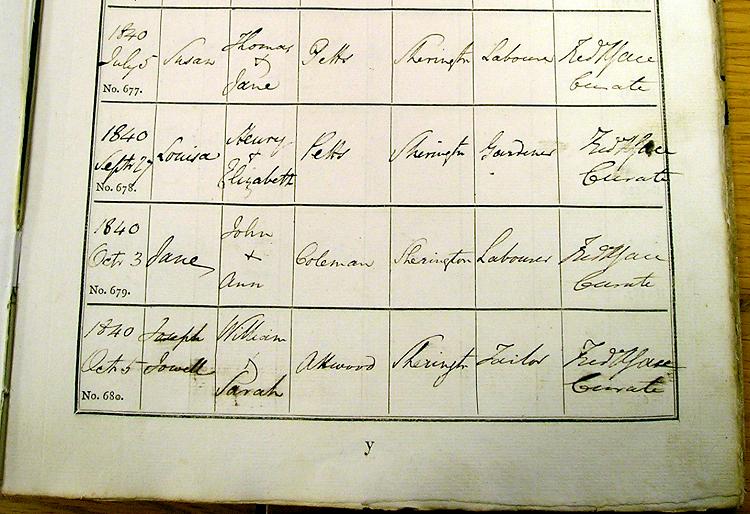 1840
July 5
No. 677.
Susan
Thomas
&
Jane
Petts
Sherington
Labourer
Curate
1840
Septr 27
No. 678.
Louisa
Henry
+
Elizabeth
Petts
Sherington
Gardener
Curate
1840
Octr 3
No. 679.
Jane
John
+
Ann
Coleman
Sherington
Labourer
Curate
1840
Octr 5
No. 680.
Joseph
Jowell
William
&
Sarah
Attwood
Sherington
Tailor
Curate
y